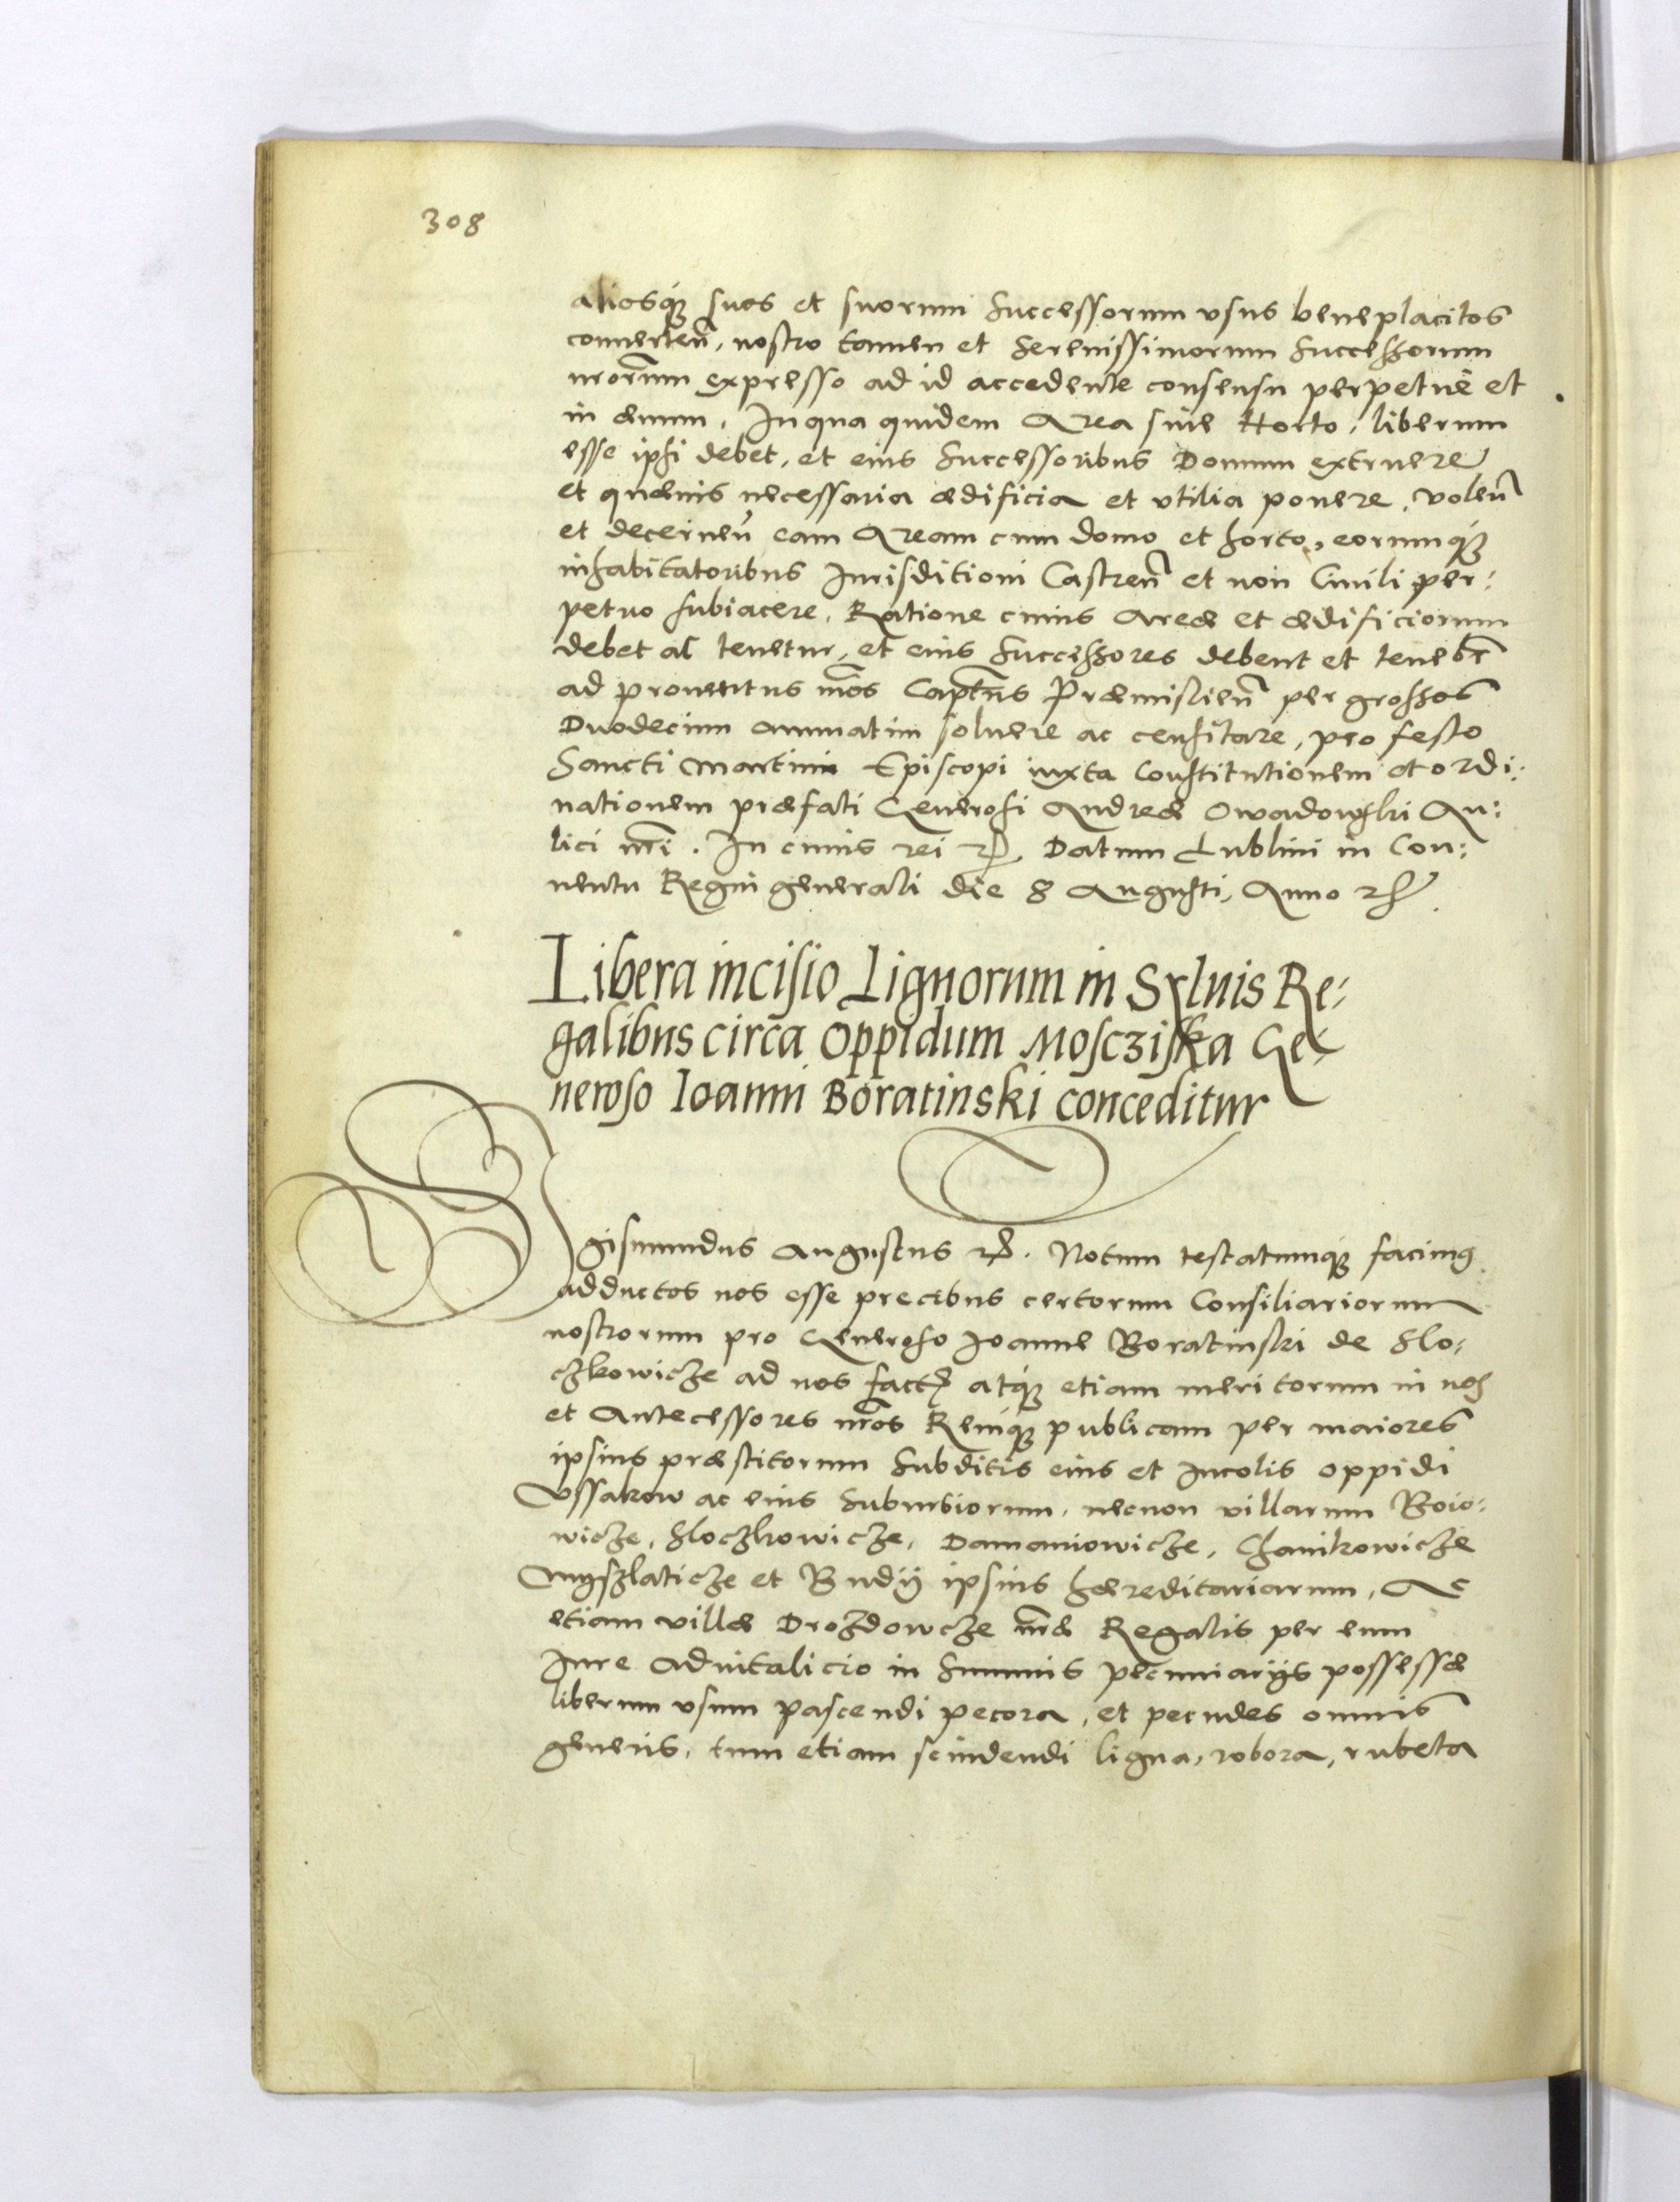 308
aliosq́ꝫ suos et suorum Successorum vsus beneplacitos
conuerteñ, nostro tamen et Serenissimorum Successorum
nr̃orum expresso ad id accedente consensu perpetuè et
in æuum. In qua quidem Area siue Horto, liberum
esse ipsi debet, et eius Successoribus Domum extruere
et quæuis necessaria ædificia et vtilia ponere, voleñ
et decerneñ eam Aream cum domo et horto, eorumq́ꝫ
inhabitatoribus Iurisditioni Castreñ et non Ciuili per:
petuo subiacere. Ratione cuius Areæ et ædificiorum
debet ac tenetur, et eius Successores debent et tenebt̃
ad prouentus nr̃os Captũs Præmislieñ per grossos
Duodecim annuatim soluere ac censitare, pro festo
Sancti Martini Episcopi iuxta Constitutionem et ordi:
nationem præfati Generosi Andreæ Owadowski Au:
lici nr̃i. In cuius rei ꝛc̃. Datum Lublini in Con:
uentu Regni generali die 8 Augusti, Anno ꝛc̃.
Libera incisio Lignorum in Syluis Re:
galibus circa Oppidum Moscziska Ge:
neroso Ioanni Boratinski conceditur
Sigismundus Augustus ꝛc̃. Notum testatumq́ꝫ facimus
adductos nos esse precibus certorum Consiliariorum
nostrorum pro Generoso Ioanne Boratinski de Slo:
czkowicze ad nos fact̃ atq́ꝫ etiam meritorum in nos
et Antecessores nr̃os Remq́ꝫ publicam per maiores
ipsius præstitorum Subditis eius et Incolis oppidi
Vssakow ac eius Suburbiorum, necnon villarum Boio:
wicze, Sloczkowicze, Damaniowicze, Chanikowicze
Myszlaticze et Budij ipsius hæreditariarum, Ac
etiam villæ Drozdowcze nr̃æ Regalis per eum
Iure Aduitalicio in Summis pecuniarijs possessæ
liberum vsum pascendi pecora, et pecudes omnis
generis, tum etiam scindendi ligna, robora, rubeta